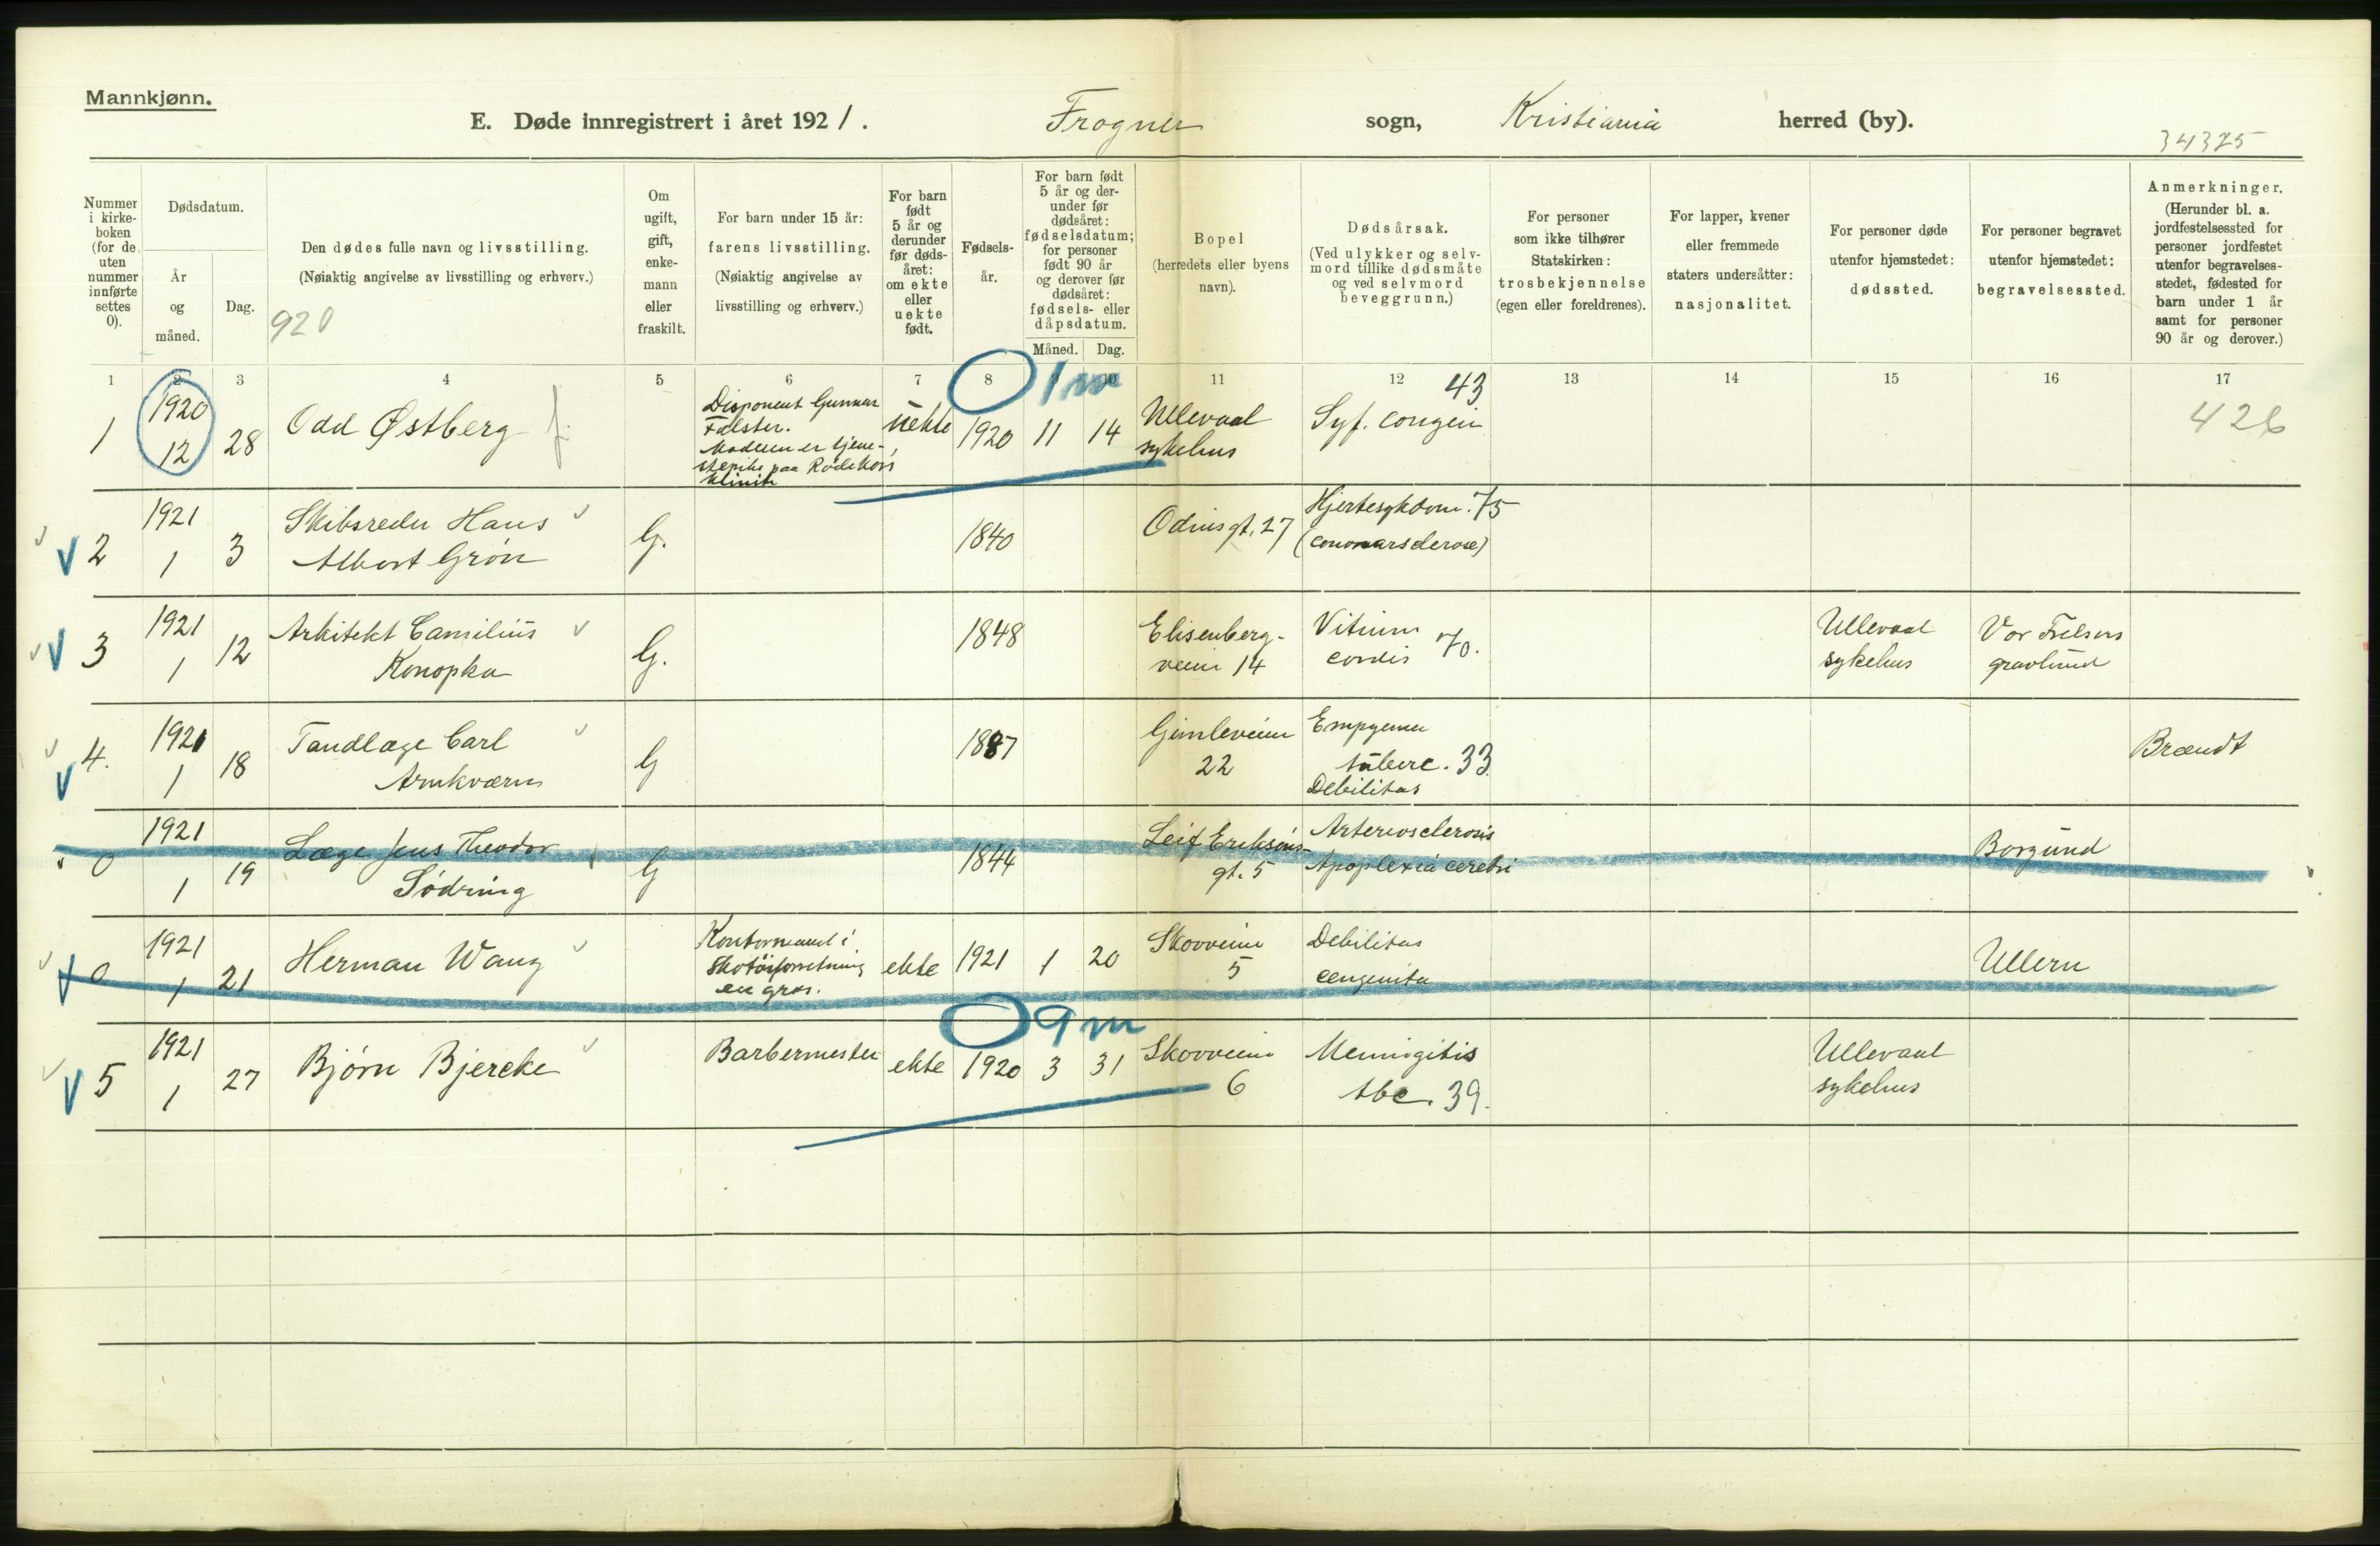 Mannkjønn.
E. Døde innregistrert i året 1921. Frogner sogn, Kristiania herred (by).
34325
Nummer i kirke- boken (for de uten nummer innførte settes 0).
Dødsdatum.
År og måned.
Dag.
Den dødes fulle navn og livsstilling.
(Nøiaktig angivelse av livsstilling og erhverv.)
920
Om ugift, gift, enke- mann eller fraskilt.
For barn under 15 år: farens livsstilling. (Nøiaktig angivelse av livsstilling og erhverv.)
For barn født 5 år og derunder før døds- året: om ekte eller uekte født.
Fødsels- år.
For barn født 5 år og der- under før dødsåret: fødselsdatum; for personer født 90 år og derover før dødsåret: fødsels- eller dåpsdatum.
Måned. Dag.
Bopel (herredets eller byens navn).
Dødsårsak. (Ved ulykker og selv- mord tillike dødsmåte og ved selvmord beveggrunn.)
For personer som ikke tilhører Statskirken: trosbekjennelse (egen eller foreldrenes).
For lapper, kvener eller fremmede staters undersåtter: nasjonalitet.
For personer døde utenfor hjemstedet: dødssted.
For personer begravet utenfor hjemstedet: begravelsessted.
Anmerkninger. (Herunder bl. a. jordfestelsessted for personer jordfestet utenfor begravelses- stedet, fødested for barn under 1 år samt for personer 90 år og derover.)
1 2 3 4 5 6 7 8 9 10 11 12 13 14 15 16 17
0 1 m
1 1920 12 28 Odd Østberg f. Disponent Gunnar Falster. Moderen er tjene- stepike paa Rødekors klinik uekte 1920 11 14 Ullevaal sykehus Syf. congen 43 426
v 2 1921 1 3 Skibsreder Hans Albert Grøn G. 1840 Odins gt. 27 Hjertesykdom. 75 (coronarsclerose)
v 3 1921 1 12 Arkitekt Camilius Konopka G. 1848 Elisenberg- veien 14 Vitium cordis 70. Ullevaal sykehus Vor Frelsers gravlund
v 4. 1921 1 18 Tandlæge Carl Arnkværn G 1887 Gimleveien 22 Empyema tuberc. 33. Debilitas Brændt
0 1921 1 19 Læge Jens Theodor Sødring G 1844 Leif Eriksøns- gt. 5 Arteriosclerosis Apoplexia cerebri Borgund
v 0 1921 1 21 Herman Wang Kontormand i Skotøiforretning en gros. ekte 1921 1 20 Skovveien 5 Debilitas congenita Ullern
0 9 m
v 5 1921 1 27 Bjørn Bjercke Barbermester ekte 1920 3 31 Skovveien 6 Meningitis tbc. 39. Ullevaal sykehus